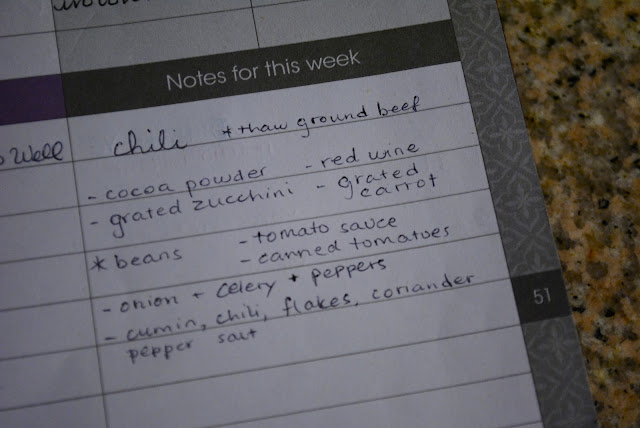 Notes for this week
Well
chili + thaw ground beef
- cocoa powder - red wine
- grated zucchini - grated carrot
* beans - tomato sauce
- canned tomatoes
- onion + celery + peppers
- cumin, chili, flakes, coriander
pepper salt
51